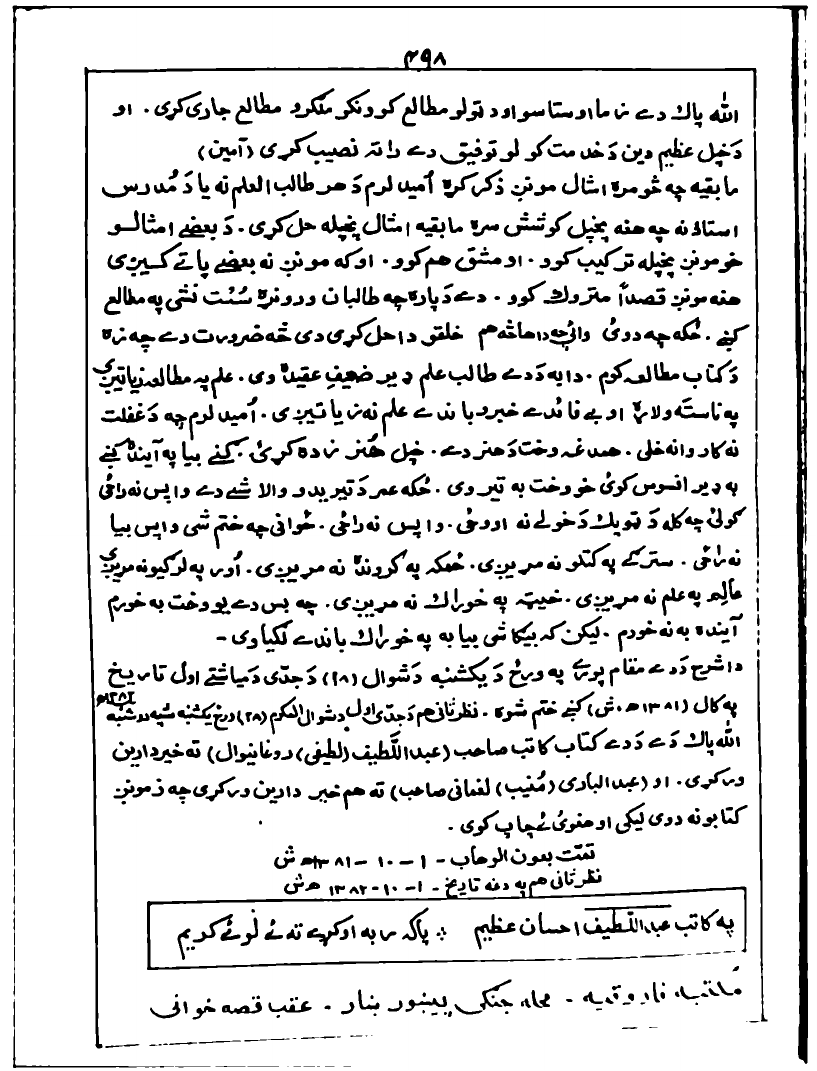 ۴۹۸
الله پاك دے زما او ستاسو او د ټولو مطالع کوونکو ملګرو مطالع جاری کړی. او
دَخپل عظیم دین دَخدمت کولو توفیق دے راته نصیب کړی (آمین)
مابقیه چه څومره امثال مونږ ذکر کړه اُمید لرم دَهر طالب العلم نه یا دَ مُدرس
استاذ نه چه هغه پخپل کوشش سره مابقیه امثال پخپله حل کړی. دَ بعضے امثالو
خو مونږ پخپله ترکیب کوو. او مشق هم کوو. او که مونږ نه بعضے پاتے کسیږی
هغه مونږ قصداً متروك کوو. دے دَپاره چه طالبان وروڼره سُست نشی په مطالع
کښے. ځکه چه دوئ وائی چه دا هاخه هم خلقو داحل کړی دی څه ضرورت دے چه زه
دَ کتاب مطالعه کوم. دا به دَدے طالب علم ډیر ضعیف عقیده وی. علم په مطالعه زیاتیږی
په ناسته ولاړه او بے فائدے خبرو باندے علم نه زیاتیږی. اُمید لرم چه دَ غفلت
نه کار وانه خلی. همدغه وخت دَهنر دے. خپل هُنر زده کړئ. کنے بیا په آینده کښے
به ډیر افسوس کوئ خو وخت به تیر وی. ځکه عمر دَ تیریدو والا شے دے واپس نه راځی
ګولئ چه کله دَ ټوپك دَ خولے نه اووځی. واپس نه راځی. ځوانی چه ختم شی واپس بیا
نه راځی. سترګے په کتلو نه مړیږی. ځمکه په کروندہ نه مړیږی. اُور په لرګیو نه مړیږی
عالم په علم نه مړیږی. خیټه په خوراك نه مړیږی. چه بس دے یو وخت به خورم
آینده به نه خورم. لیکن که بیګا شی بیا به په خوراك باندے لګیا وی -
دا شرح دَدے مقام پورے په ورځ دَ یکشنبه دَشوال (۲۸) دَ جدّی دَ میاشتے اول تاریخ
په کال (۱۳۸۱ ھ ش) کښے ختم شوه. نظرثانی هم دَ جدّی اول د شوال المکرم (۲۸) ورځ یکشنبه شپه دوشنبه ۱۳۸۲ھ
الله پاك دَے دَدے کتاب کاتب صاحب (عبداللّطیف (لطیفی) دوغانیوال) ته خیر دارین
ورکړی. او (عبدالباری (مُنیب) لغمانی صاحب) ته هم خیر دارین ورکړی چه زمونږ
کتابونه دوی لیکی او هغوئ ئے چاپ کوی.
تمّت بعون الوهاب - ۱ - ۱۰ - ۱۳۸۱ھ ش
نظرثانی هم په دغه تاریخ - ۱ - ۱۰ - ۱۳۸۲ ھ ش
په کاتب عبداللّطیف احسان عظیم ؞ پاکه ربه اوکړے ته ئے لوئے کریم
مکتبه فاروقیه - محله جنگی پیښور ښار - عقب قصه خوانی